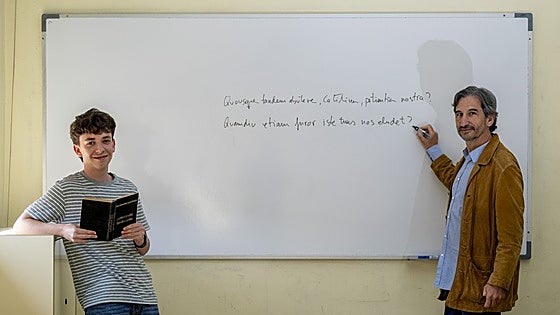 Quousque tandem abutere, Catilina, patientia nostra?
Quamdiu etiam furor iste tuus nos eludet?